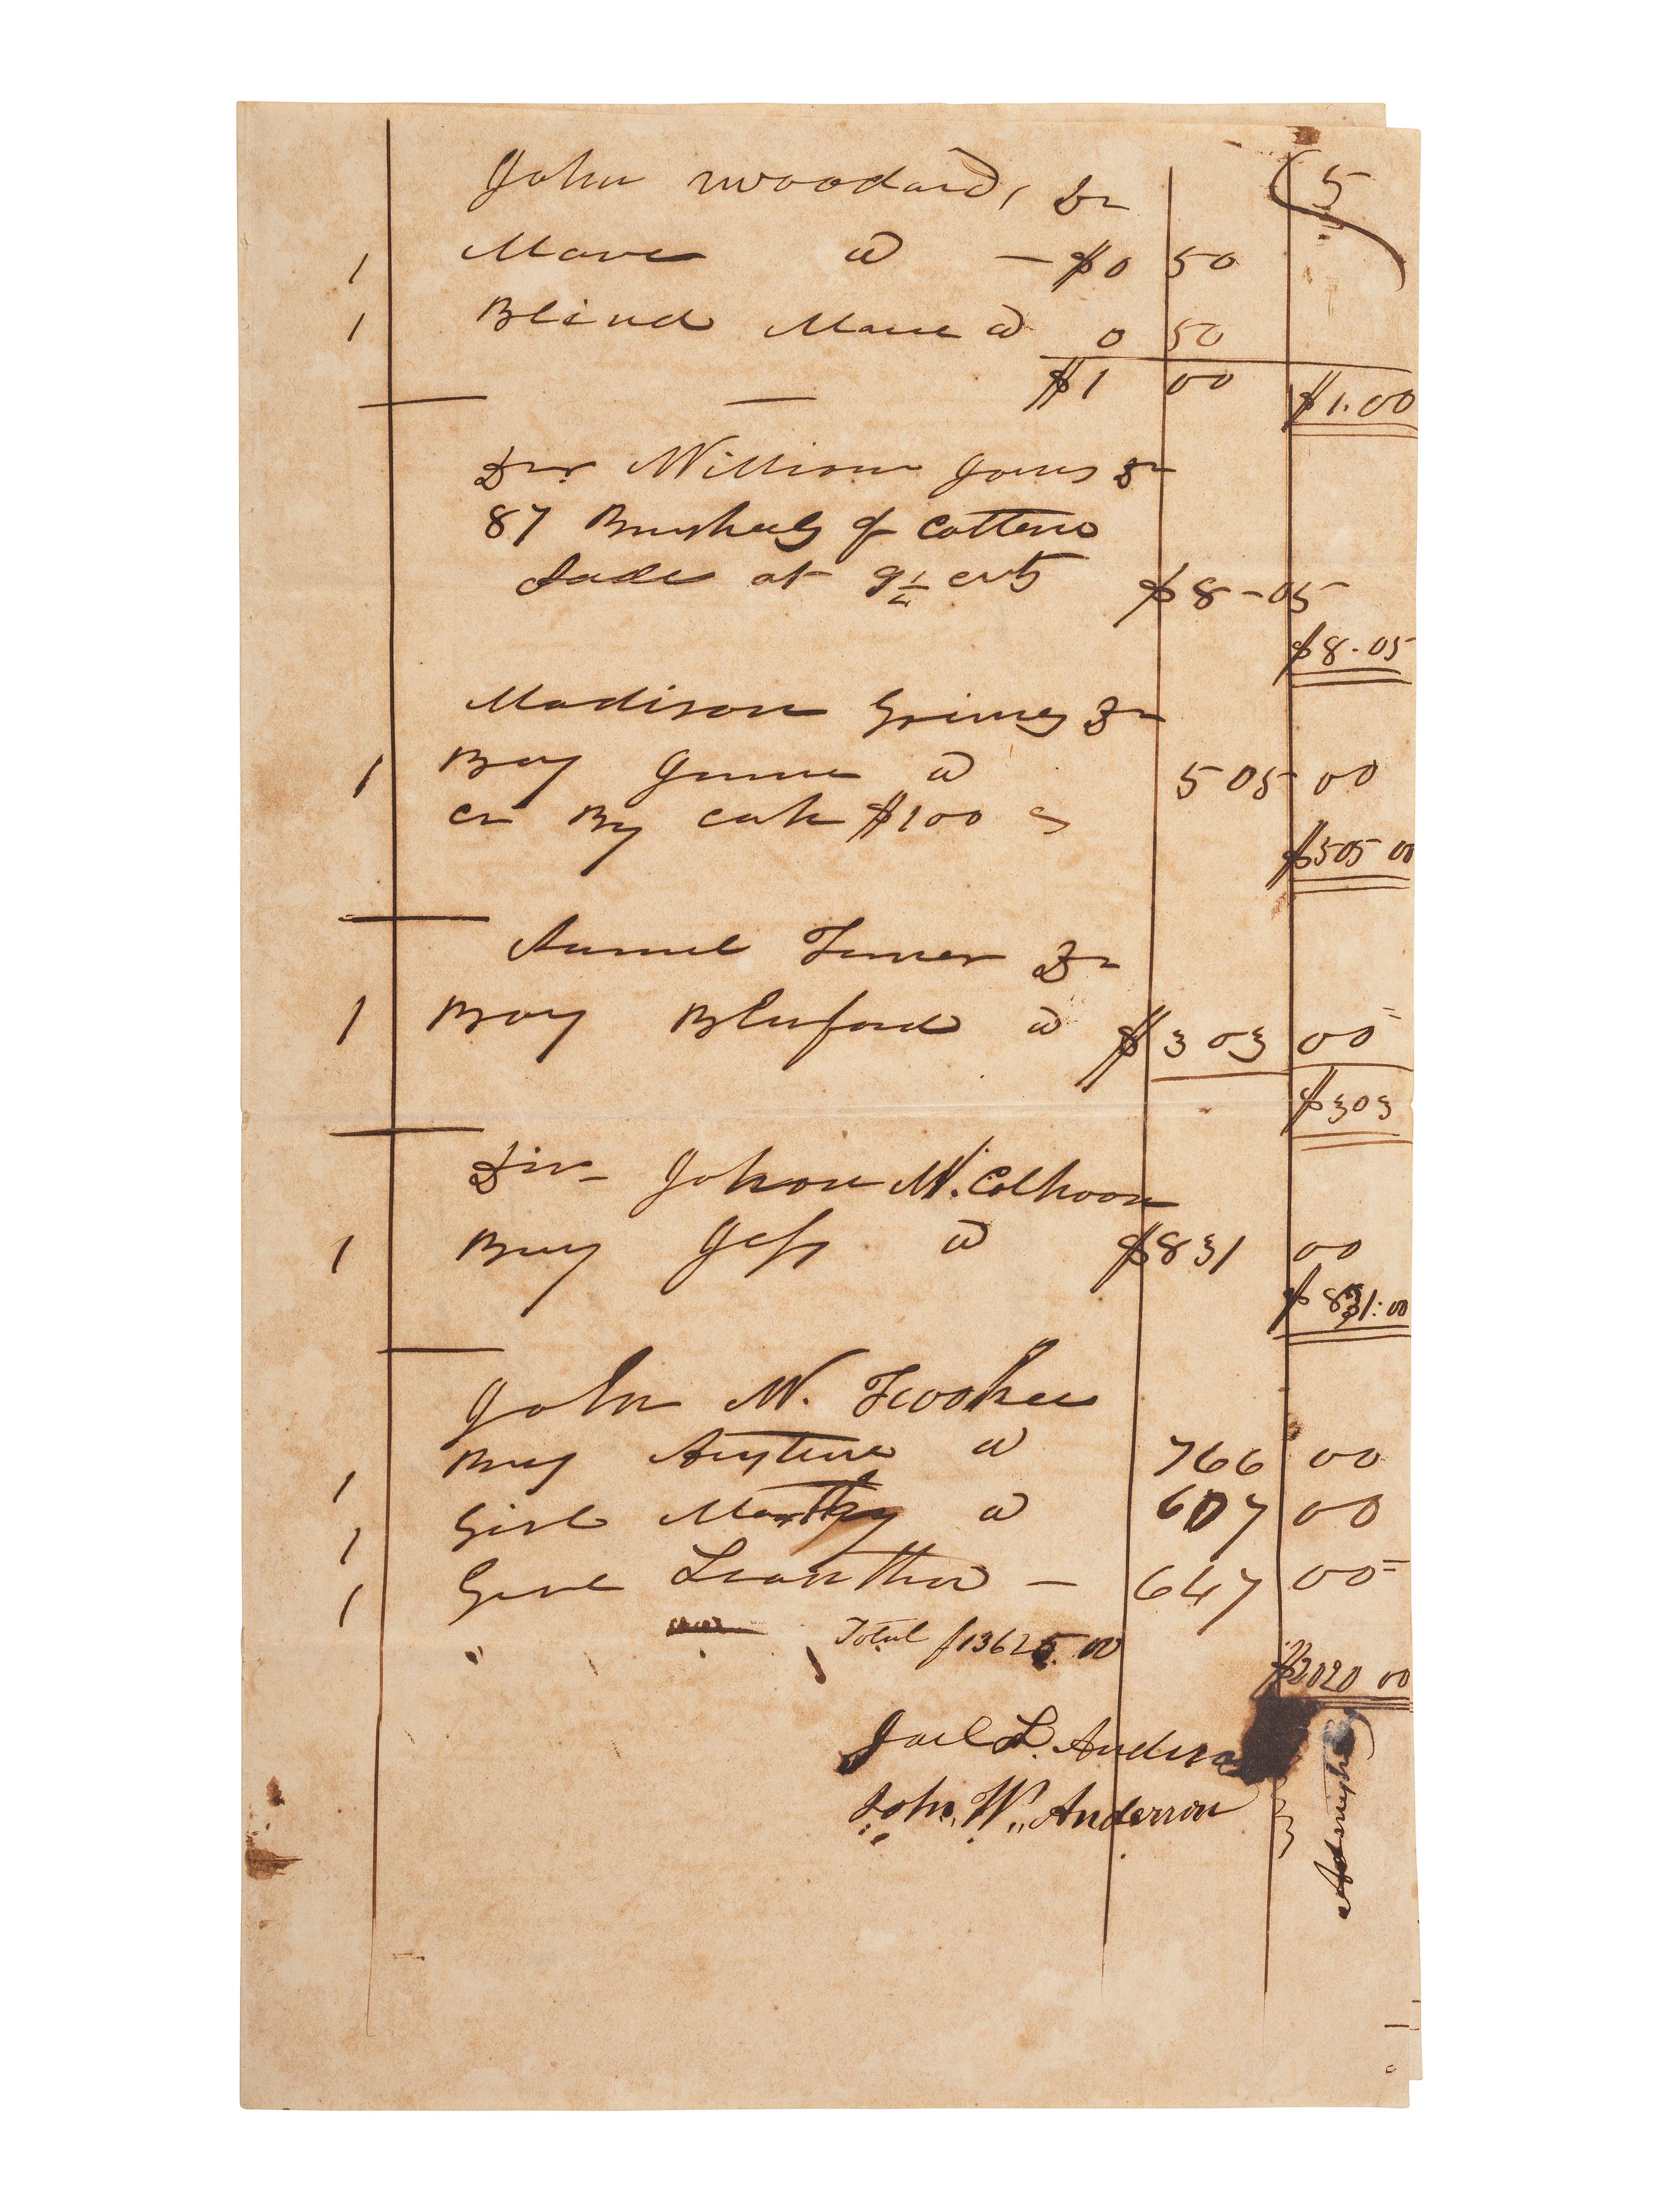 5
John Woodard, Dr
1 Mare @ — $0 50
1 Blind Mare @ 0 50
$1 00 $1.00
Dr William Jones Dr
87 Bushels of Cotton
at 9¼ cnts $8-05
$8.05
Madison Grimes Dr
1 Boy @ 505 00
Cr By Cash $100
$505 00
Turner Dr
1 Boy Bluford @ $303 00
$303
M. Colhoon
1 Boy Jess @ $831 00
$831:00
John W.
1 Boy @ 766 00
1 Girl @ 607 00
1 Girl — 647 00
Total $13625.00
$2020 00
Joel L. Anderson
John, W,, Anderson